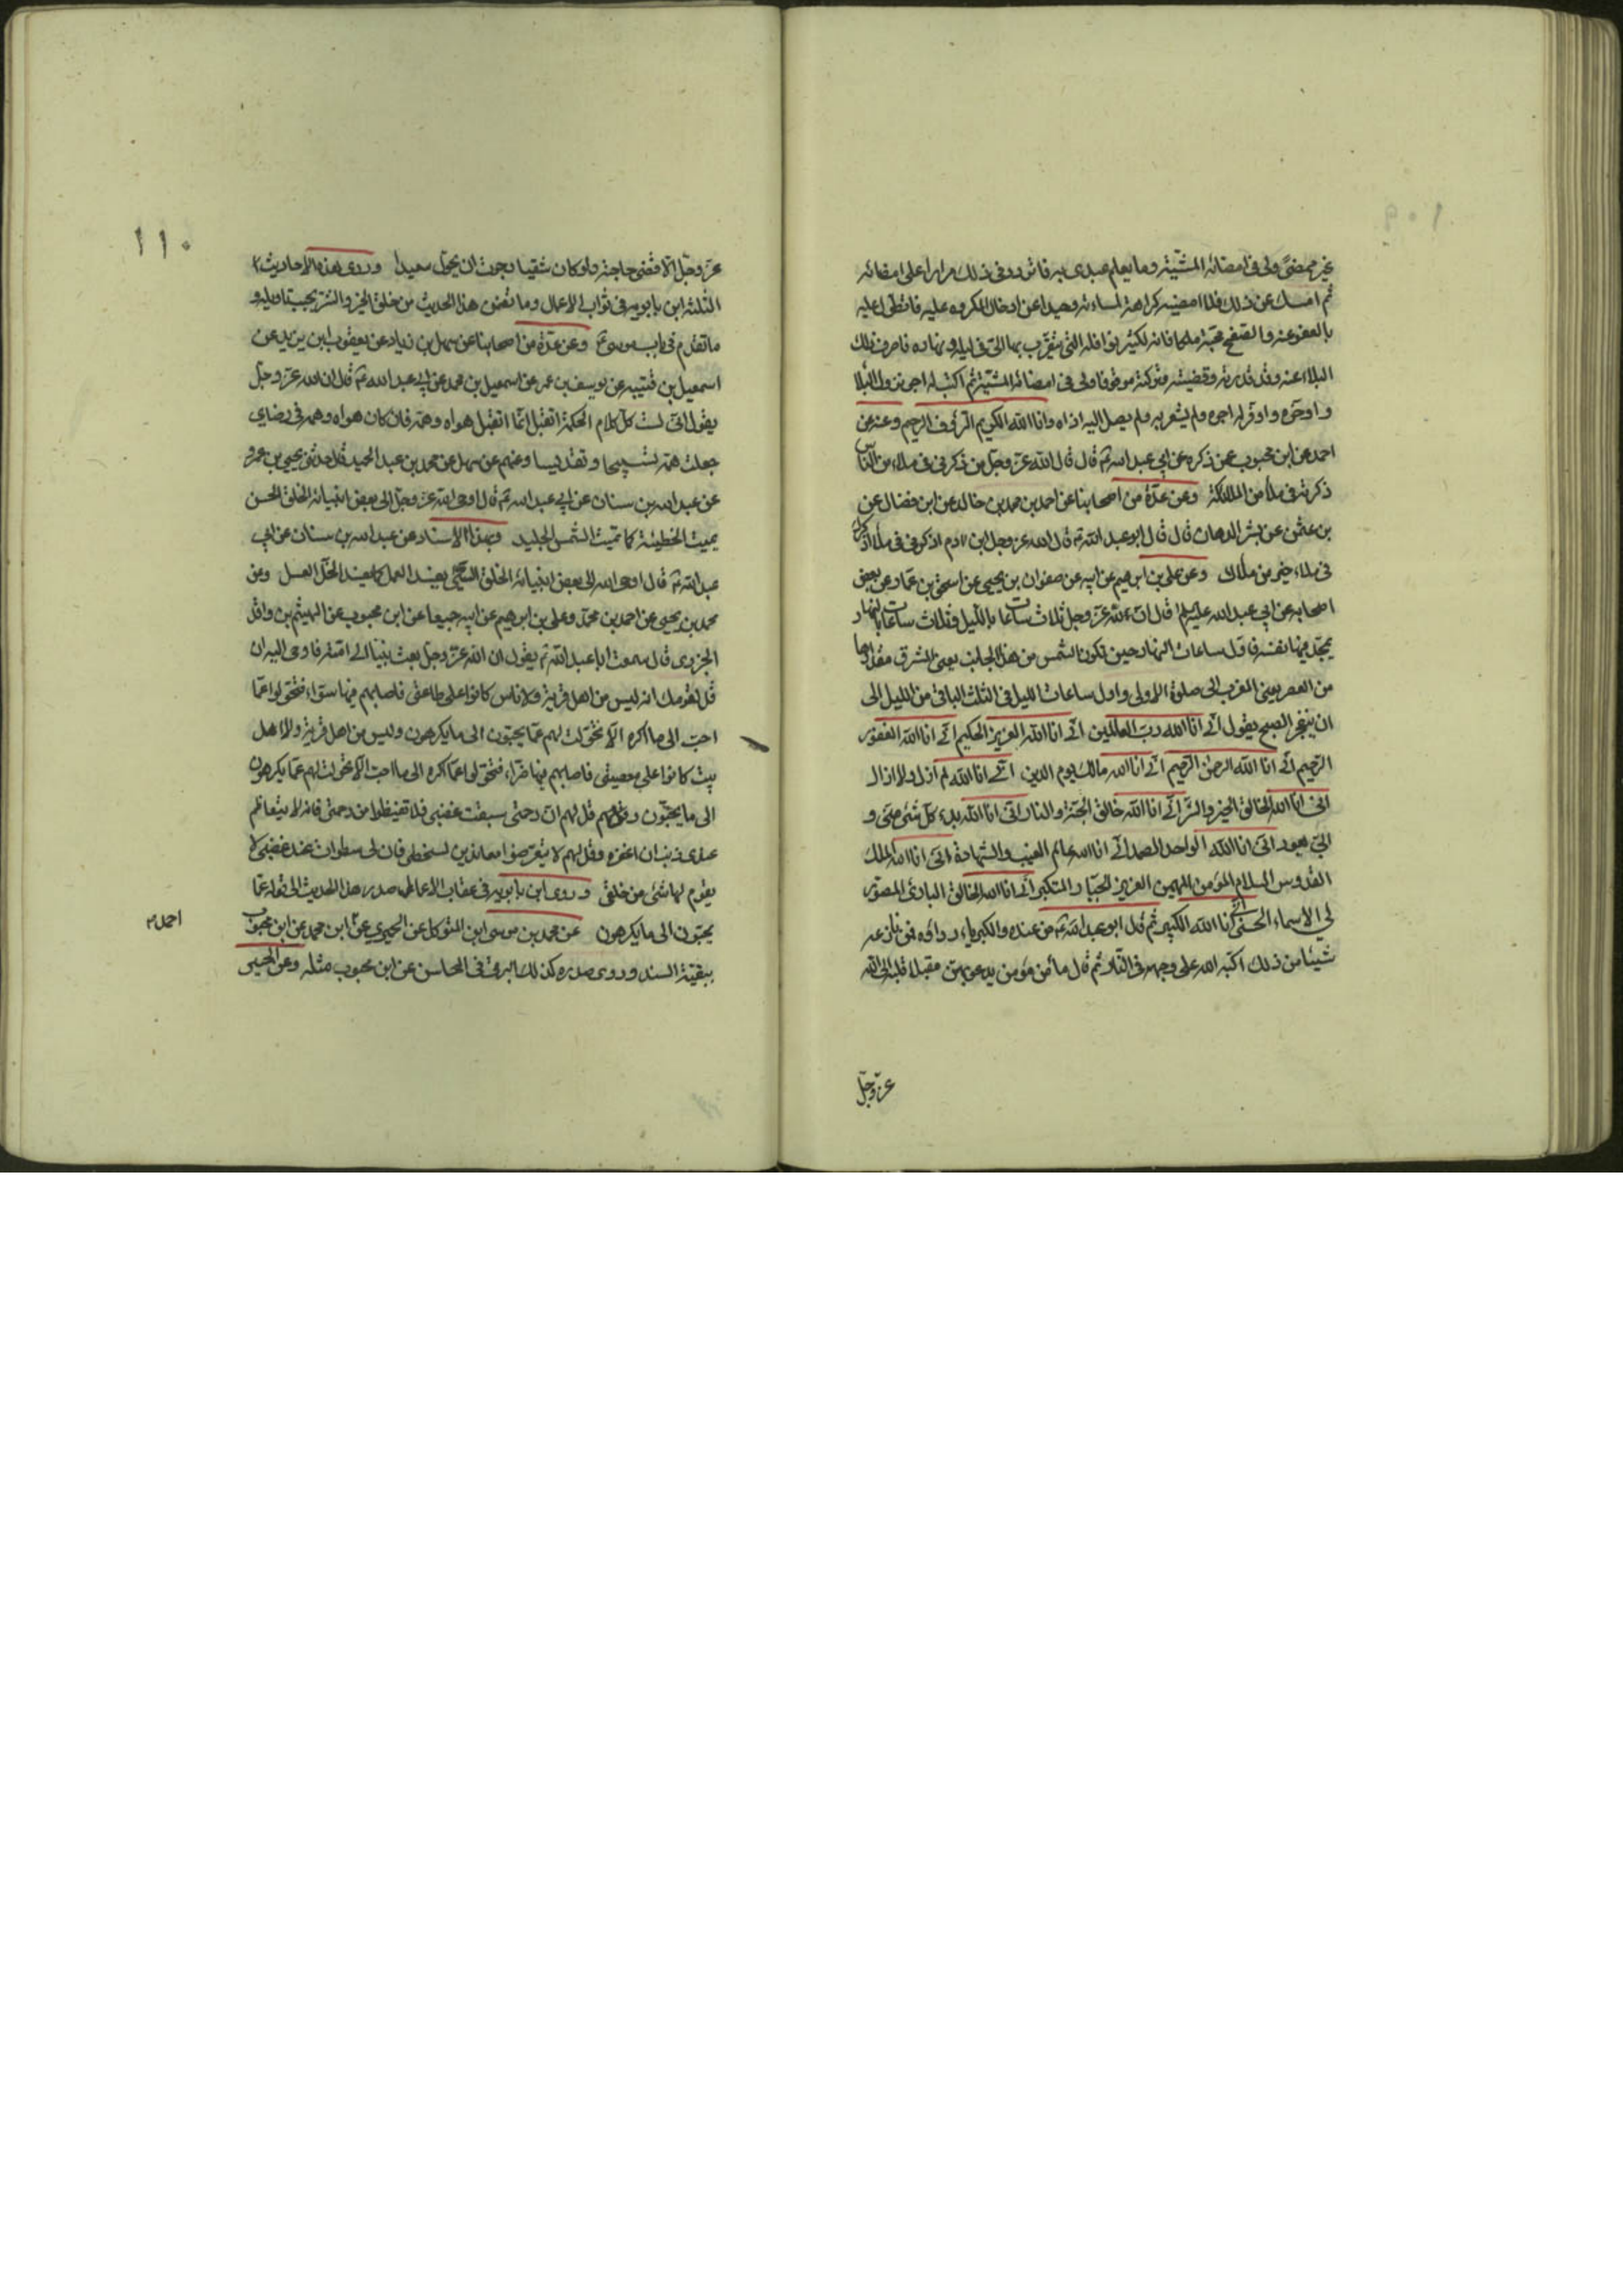 غير ممضىّ ولى فى امضائه المشيّة وما يعلم عبدى به فاتردد فى ذلك مرارا على امضائه
ثم امسك عن ذلك فلا امضيه كراهة لمساءته وحيدا عن ادخال المكروه عليه فاتطول عليه
بالعفو عنه والصفح محبة لمكافاته لكثير نوافله التى يتقرّب بها الىّ فى ليله ونهاره فاصرف ذلك
البلاء عنه وقد قدرته وقضيته وتركته موقوفا ولى فى امضائه المشيّة ثم اكتب له اجر نزول البلا
وادخره واوفر له اجره ولم يشعر به ولم يصل اليه اذاه وانا الله الكريم الرؤف الرحيم وعنه عن
احمد عن ابن محبوب عمن ذكره عن ابى عبد الله ع قال قال الله عز وجل من ذكرنى فى ملاء من الناس
ذكرته فى ملأ من الملائكة وعن عدّة من اصحابنا عن احمد بن محمد بن خالد عن ابن فضال عن
بن عثمن عن بشر الدهان قال قال ابو عبد الله ع قال الله عز وجل ابن ادم اذكرنى فى ملأ اذكرك
فى ملاء خير من ملأك وعن على بن ابرهيم عن ابيه عن صفوان بن يحيى عن اسحق بن عمار عن بعض
اصحابه عن ابى عبد الله عليه السلم قال ان لله عز وجل ثلاث ساعات بالليل وثلاث ساعات بالنهار
يمجد فيها نفسه فاول ساعات النهار حين تكون الشمس من هذا الجانب يعنى المشرق مقدارها
من العصر يعنى المغرب الى صلوة الاولى واول ساعات الليل فى الثلث الباقى من الليل الى
ان ينفجر الصبح يقول انّى انا الله رب العالمين انّى انا الله العزيز الحكيم انّى انا الله الغفور
الرّحيم انّى انا الله الرحمن الرّحيم انّى انا الله مالك يوم الدين انّى انا الله لم ازل ولا ازال
انّى انا الله الخالق الخير والشرّ انّى انا الله خالق الجنّة والنار انّى انا الله بدء كل شئ منّى و
الىّ يعود انّى انا الله الواحد الصمد انّى انا الله عالم الغيب والشهادة انّى انا الله الملك
القدوس السلام المؤمن المهيمن العزيز الجبّار المتكبر انّى انا الله الخالق البارئ المصوّر
لى الاسماء الحسنى انّى انا الله الكبير ثم قال ابو عبد الله ع من عنده والكبرياء رداؤه فمن نازعه
شيئا من ذلك اكبّه الله على وجهه فى النّار ثم قال ما من مؤمن يدعو بهن مقبلا قلبه الى الله
عزّ وجلّ
١١٠
عزّ وجلّ الّا قضى حاجته ولو كان شقيا رجوت ان يحوّل سعيدا وروى هذه الاحاديث
الثلثة ابن بابويه فى ثواب الاعمال وما تضمن هذا الحديث من خلق الخير والشرّ يجب تاويله و
ما تقدم فى باب موسى ع وعن عدّة من اصحابنا عن سهل بن زياد عن يعقوب ابن يزيد عن
اسمعيل بن قتيبه عن يوسف بن عمر عن اسمعيل بن محمد عن ابى عبد الله ع قال ان الله عزّ وجلّ
يقول انّى لست كل كلام الحكمة اتقبل انّما اتقبل هواه وهمّه فان كان هواه وهمه فى رضاى
جعلت همّه تسبيحا وتقديسا وعنهم عن سهل عن محمد بن عبد الحميد قال حدثنى يحيى بن عمرو
عن عبد الله بن سنان عن ابى عبد الله ع قال اوحى الله عزّ وجلّ الى بعض انبيائه الخلق الحسن
يميث الخطيئة كما تميث الشمس الجليد وبهذا الاسناد عن عبد الله بن سنان عن ابى
عبد الله ع قال اوحى الله الى بعض انبيائه الخلق السّيّئ يفسد العمل كما يفسد الخلّ العسل وعن
محمد بن يحيى عن احمد بن محمّد وعلى بن ابرهيم عن ابيه جميعا عن ابن محبوب عن الهيثم بن واقد
الجزرى قال سمعت ابا عبد الله ع يقول ان الله عزّ وجلّ بعث نبيّا الى امّته فاوحى اليه ان
قل لقومك انه ليس من اهل قرية ولا ناس كانوا على طاعتى فاصابهم فيها سرّاء فتحوّلوا عمّا
احبّ الى ما اكره الّا تحوّلت لهم عمّا يحبّون الى ما يكرهون وليس من اهل قرية ولا اهل
بيت كانوا على معصيتى فاصابهم فيها ضرّاء فتحوّلوا عمّا اكره الى ما احبّ الّا تحولت لهم عمّا يكرهون
الى ما يحبّون وقل لهم انّ رحمتى سبقت غضبى فلا تقنطوا من رحمتى فانه لا يتعاظم
عندى ذنب ان اغفره وقل لهم لا يتعرّضوا معاندين لسخطى فان لى سطوات عند غضبى لا
يقوم لها شئ من خلقى وروى ابن بابويه فى عقاب الاعمال صدر هذا الحديث الى قوله عمّا
يحبّون الى ما يكرهون عن محمد بن موسى ابن المتوكل عن الحميرى عن ابن محمد عن ابن محبوب
احمد
ببقيّة السند وروى صدره كذلك البرقى فى المحاسن عن ابن محبوب مثله وعن الحسين